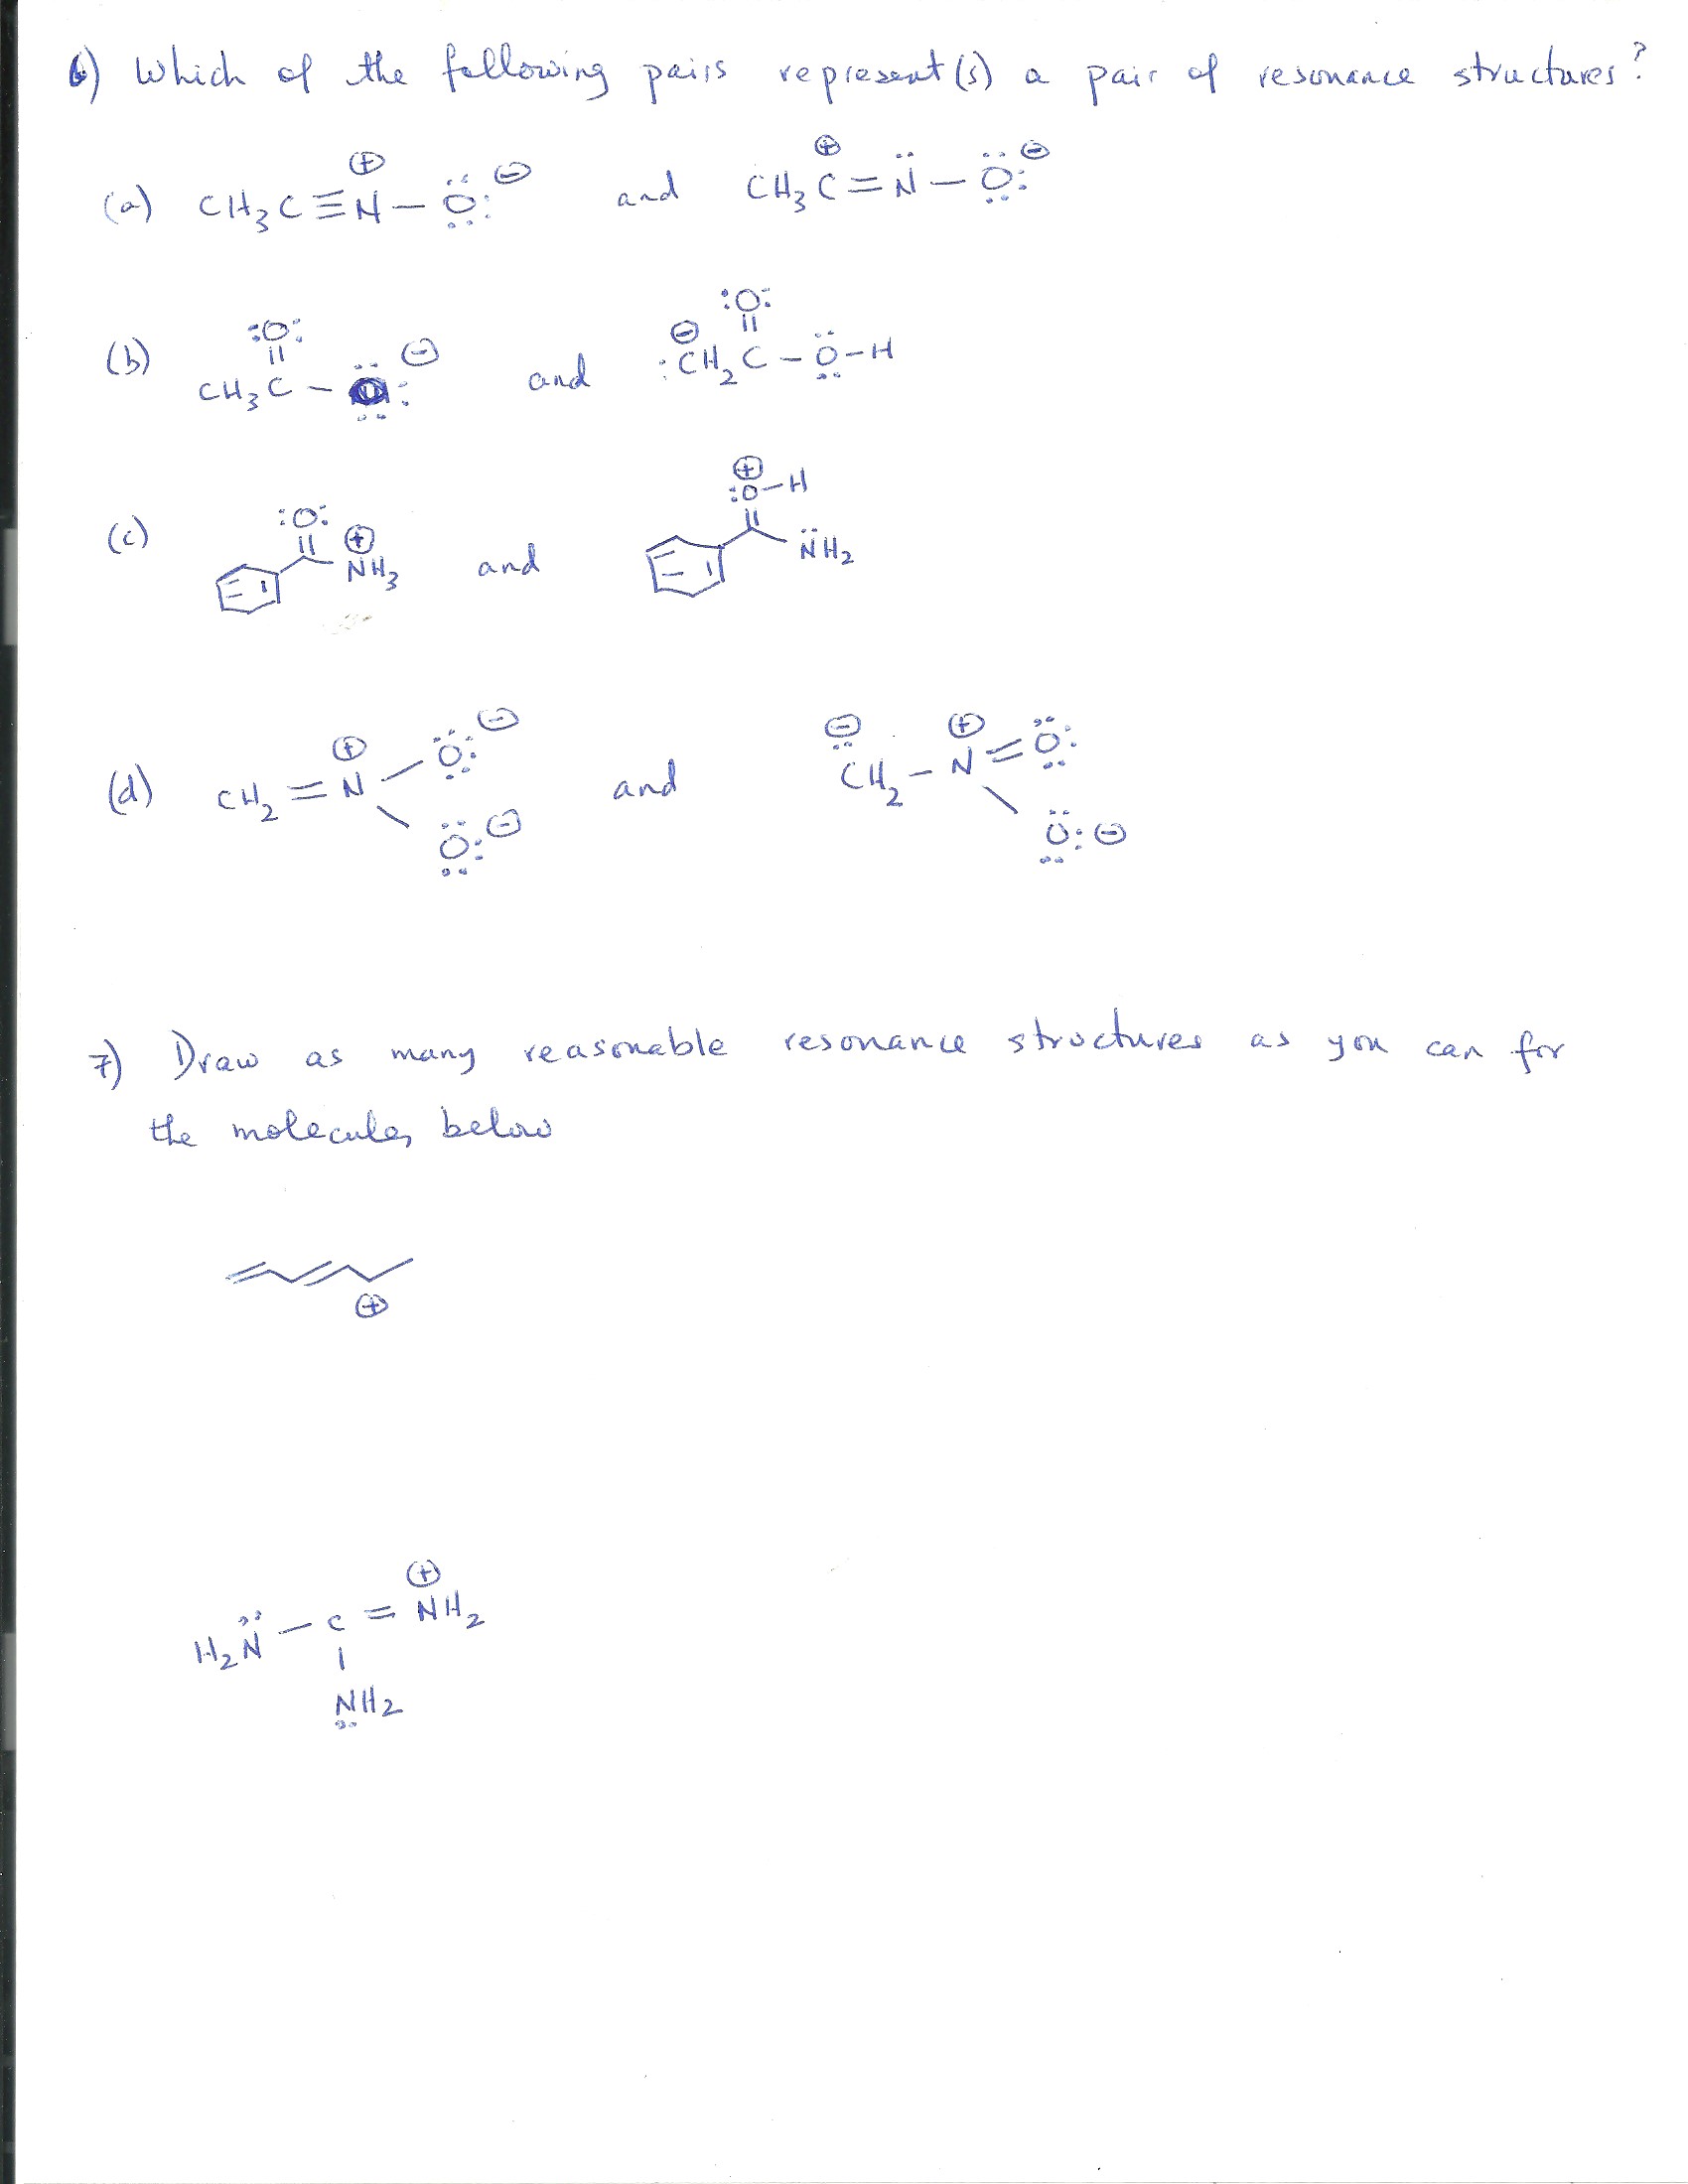 6) Which of the following pairs represent(s) a pair of resonance structures?
(a) CH₃C≡N⊕–Ö:⊖ and CH₃C⊕=N̈–Ö:⊖
:O:
(b) CH₃C – :⊖ and ⊖:CH₂C–Ö–H
:O:
(c) :O: ⊕NH₃ and ⊕:O–H N̈H₂
(d) CH₂=N⊕ –Ö:⊖ Ö:⊖ and ⊖CH₂–N⊕=Ö: Ö:⊖
7) Draw as many reasonable resonance structures as you can for
the molecules below
⊕
⊕
H₂N̈ – C = NH₂
|
NH₂